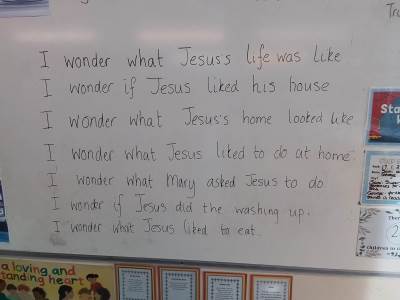 I wonder what Jesus's life was like
I wonder if Jesus liked his house
I wonder what Jesus's home looked like
I wonder what Jesus liked to do at home
I wonder what Mary asked Jesus to do.
I wonder if Jesus did the washing up.
I wonder what Jesus liked to eat.
a loving and
standing heart